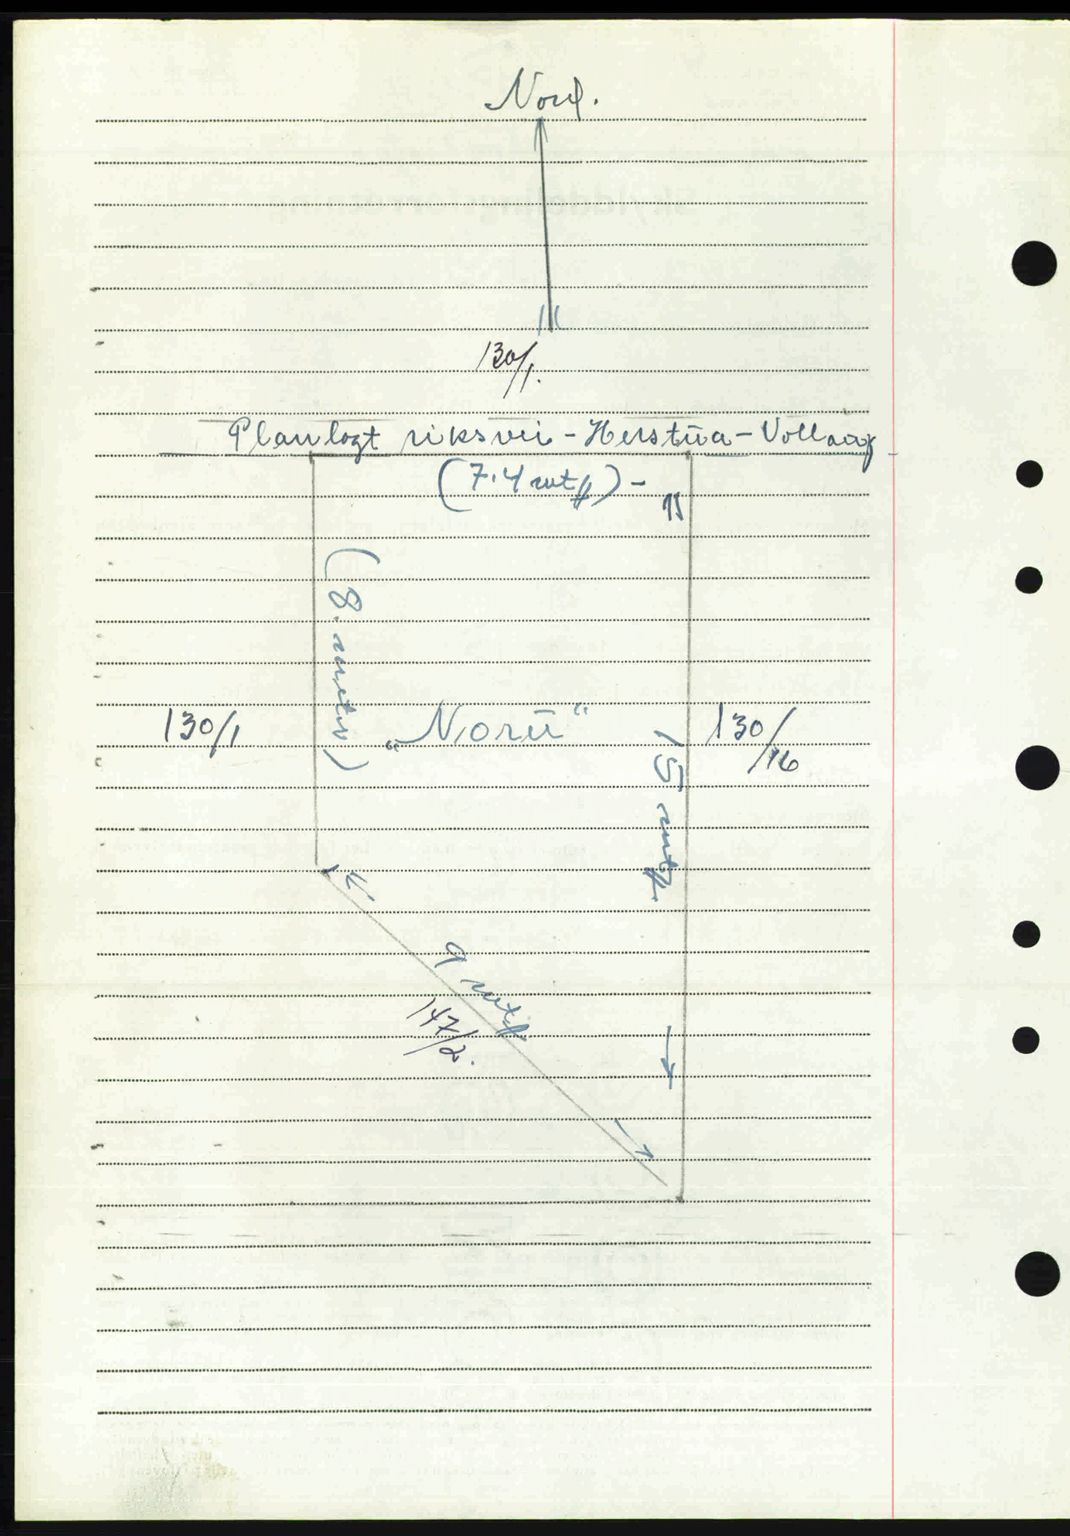 Nord.
130/1.
Planlagt riksvei - Herstua - Vollaug
(7.4 mtr) -
(8. meter)
130/1
„Noru“
130/16
15 mtr.
9 mtr
147/2.